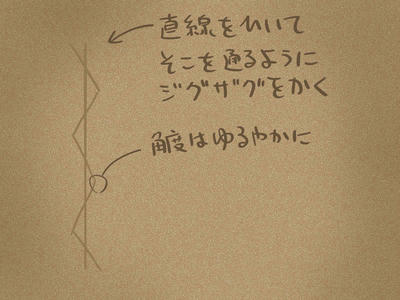 直線をひいて
そこを通るように
ジグザグをかく
角度はゆるやかに